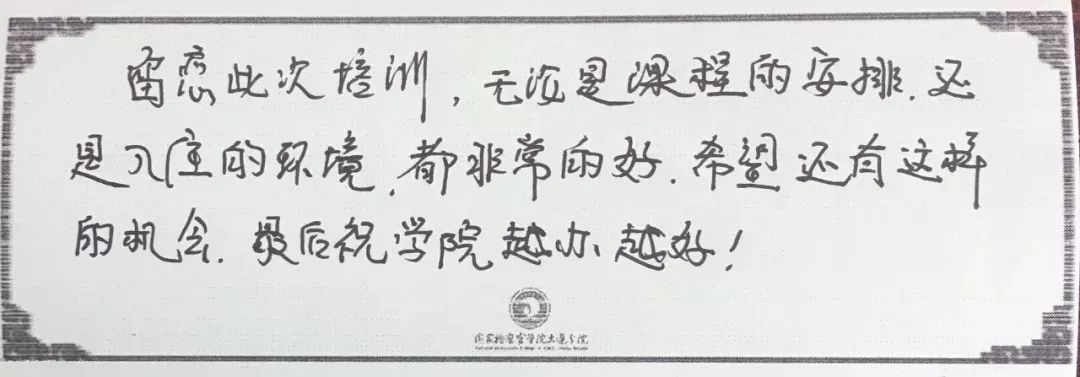 留恋此次培训，无论是课程的安排，还
是入住的环境，都非常的好，希望还有这样
的机会。最后祝学院越办越好！
国家检察官学院大连分院